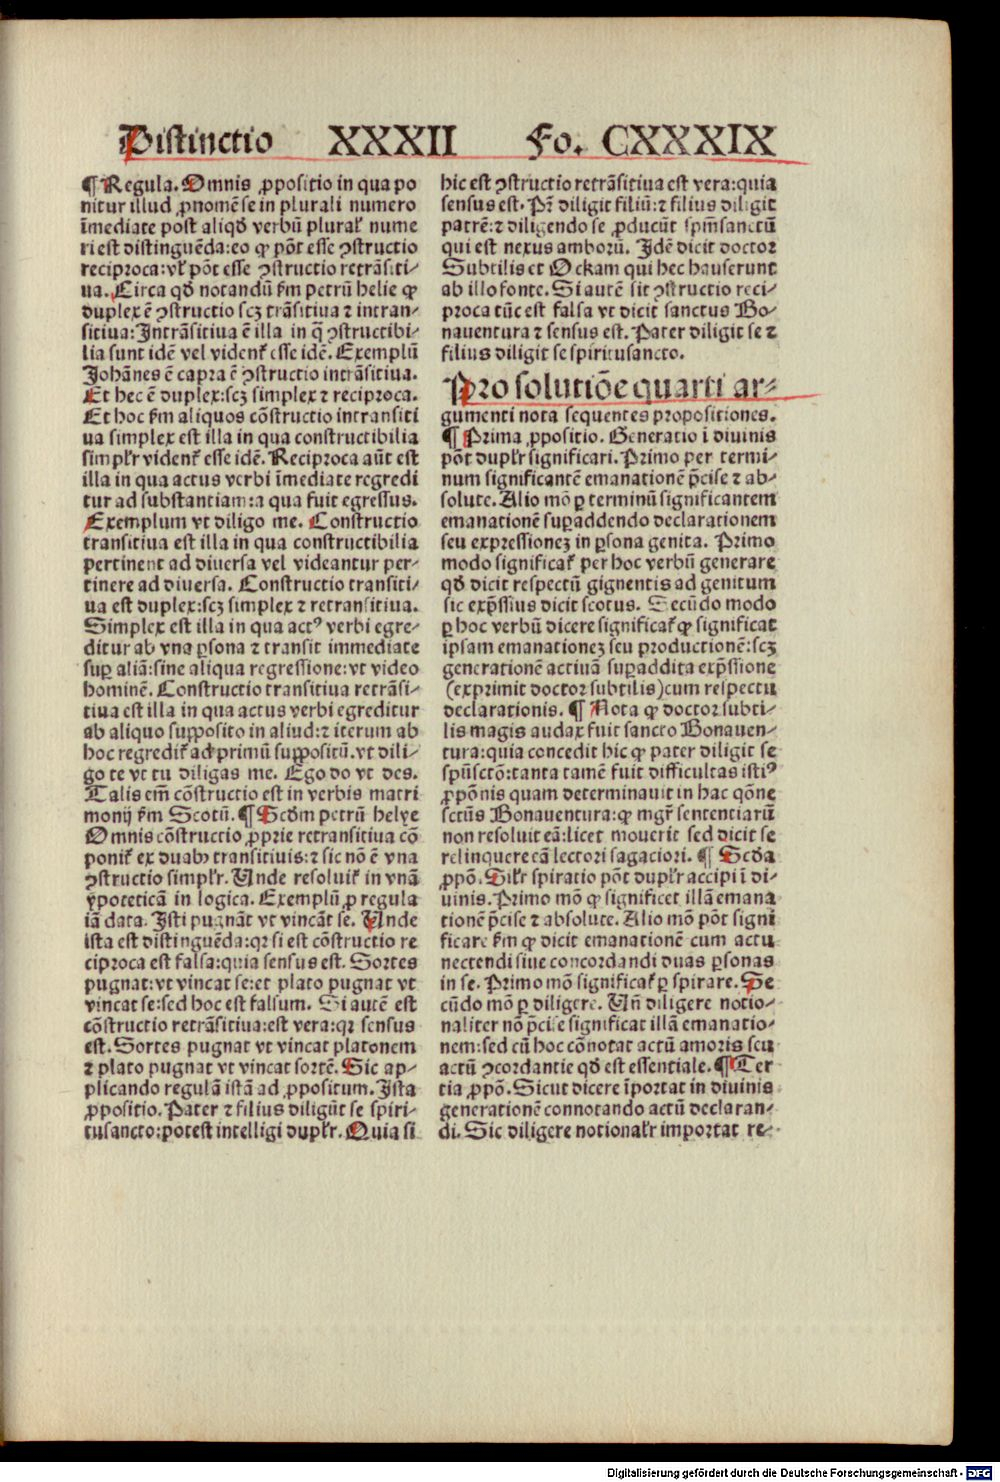 Distinctio XXXII Fo. CXXXIX
¶ Regula. Omnis ꝓpositio in qua po
nitur illud ꝓnomē se in plurali numero
īmediate post aliqđ verbū pluraƚ nume
ri est distinguēda: eo ꝙ pōt esse ꝯstructio
reciproca: vƚ pōt esse ꝯstructio retrāsiti-
ua. Circa qđ notandū ẜm petrū helie ꝙ
duplex ē ꝯstructio scꝫ trāsitiua ⁊ intran-
sitiua: Intrāsitiua ē illa in q̄ ꝯstructibi-
lia sunt idē vel videnť esse idē. Exemplū
Johānes ē capra ē ꝯstructio intrāsitiua.
Et hec ē duplex: scꝫ simplex ⁊ reciproca.
Et hoc ẜm aliquos cōstructio intransiti
ua simplex est illa in qua constructibilia
simplr̄ videnť esse idē. Reciproca aūt est
illa in qua actus verbi īmediate regredi
tur ad substantiam: a qua fuit egressus.
Exemplum vt diligo me. Constructio
transitiua est illa in qua constructibilia
pertinent ad diuersa vel videantur per-
tinere ad diuersa. Constructio transiti-
ua est duplex: scꝫ simplex ⁊ retransitiua.
Simplex est illa in qua actꝰ verbi egre-
ditur ab vna ꝑsona ⁊ transit immediate
suꝑ aliā: sine aliqua regressione: vt video
hominē. Constructio transitiua retrāsi-
tiua est illa in qua actus verbi egreditur
ab aliquo supposito in aliud: ⁊ iterum ab
hoc regrediť ad primū suppositū. vt dili-
go te vt tu diligas me. Ego do vt des.
Talis em̄ cōstructio est in verbis matri
monij ẜm Scotū. ¶ Scđm petrū helye
Omnis cōstructio ꝓprie retransitiua cō
poniť ex duabꝫ transitiuis: ⁊ sic nō ē vna
ꝯstructio simplr̄. Unde resoluiť in vnā
ypoteticā in logica. Exemplū ꝓ regula
iā data. Isti pugnāt vt vincāt se. Unde
ista est distinguēda: qr si est cōstructio re
ciproca est falsa: quia sensus est. Sortes
pugnat: vt vincat se: et plato pugnat vt
vincat se: sed hoc est falsum. Si autē est
cōstructio retrāsitiua: est vera: qr sensus
est. Sortes pugnat vt vincat platonem
⁊ plato pugnat vt vincat sortē. Sic ap-
plicando regulā istā ad ꝓpositum. Ista
ꝓpositio. Pater ⁊ filius diligūt se spiri-
tusancto: potest intelligi duplr̄. Quia si
hic est ꝯstructio retrāsitiua est vera: quia
sensus est. Pr̄ diligit filiū: ⁊ filius diligit
patrē: ⁊ diligendo se ꝓducūt spm̄sanctū
qui est nexus amborū. Idē dicit doctor
Subtilis et Ockam qui hec hauserunt
ab illo fonte. Si autē sit ꝯstructio reci-
proca tūc est falsa vt dicit sanctus Bo-
nauentura ⁊ sensus est. Pater diligit se ⁊
filius diligit se spiritusancto.
Pro solutiōe quarti ar-
gumenti nota sequentes propositiones.
¶ Prima ꝓpositio. Generatio ī diuinis
pōt duplr̄ significari. Primo per termi-
num significantē emanationē p̄cise ⁊ ab-
solute. Alio mō ꝑ terminū significantem
emanationē suꝑaddendo declarationem
seu expressioneꝫ in ꝑsona genita. Primo
modo significať per hoc verbū generare
qđ dicit respectū gignentis ad genitum
sic exp̄ssius dicit scotus. Secūdo modo
ꝑ hoc verbū dicere significať ꝙ significat
ipsam emanationeꝫ seu productionē: scꝫ
generationē actiuā suꝑaddita exp̄ssione
(exprimit doctor subtilis) cum respectu
declarationis. ¶ Nota ꝙ doctor subti-
lis magis audax fuit sancto Bonauen-
tura: quia concedit hic ꝙ pater diligit se
spūsctō: tanta tamē fuit difficultas istiꝰ
ꝓpōnis quam determinauit in hac qōne
sctūs Bonauentura: ꝙ mgr̄ sententiarū
non resoluit eā: licet mouerit sed dicit se
relinquere eā lectori sagaciori. ¶ Scđa
ꝓpō. Silr̄ spiratio pōt duplr̄ accipi ī di-
uinis. Primo mō ꝙ significet illā emana
tionē p̄cise ⁊ absolute. Alio mō pōt signi
ficare ẜm ꝙ dicit emanationē cum actu
nectendi siue concordandi duas ꝑsonas
in se. Primo mō significať ꝑ spirare. Se
cūdo mō ꝑ diligere. Un̄ diligere notio-
naliter nō p̄cise significat illā emanatio-
nem: sed cū hoc cōnotat actū amoris seu
actū ꝯcordantie qđ est essentiale. ¶ Ter
tia ꝓpō. Sicut dicere īportat in diuinis
generationē connotando actū declaran-
di. Sic diligere notionalr̄ importat re-
Digitalisierung gefördert durch die Deutsche Forschungsgemeinschaft - DFG